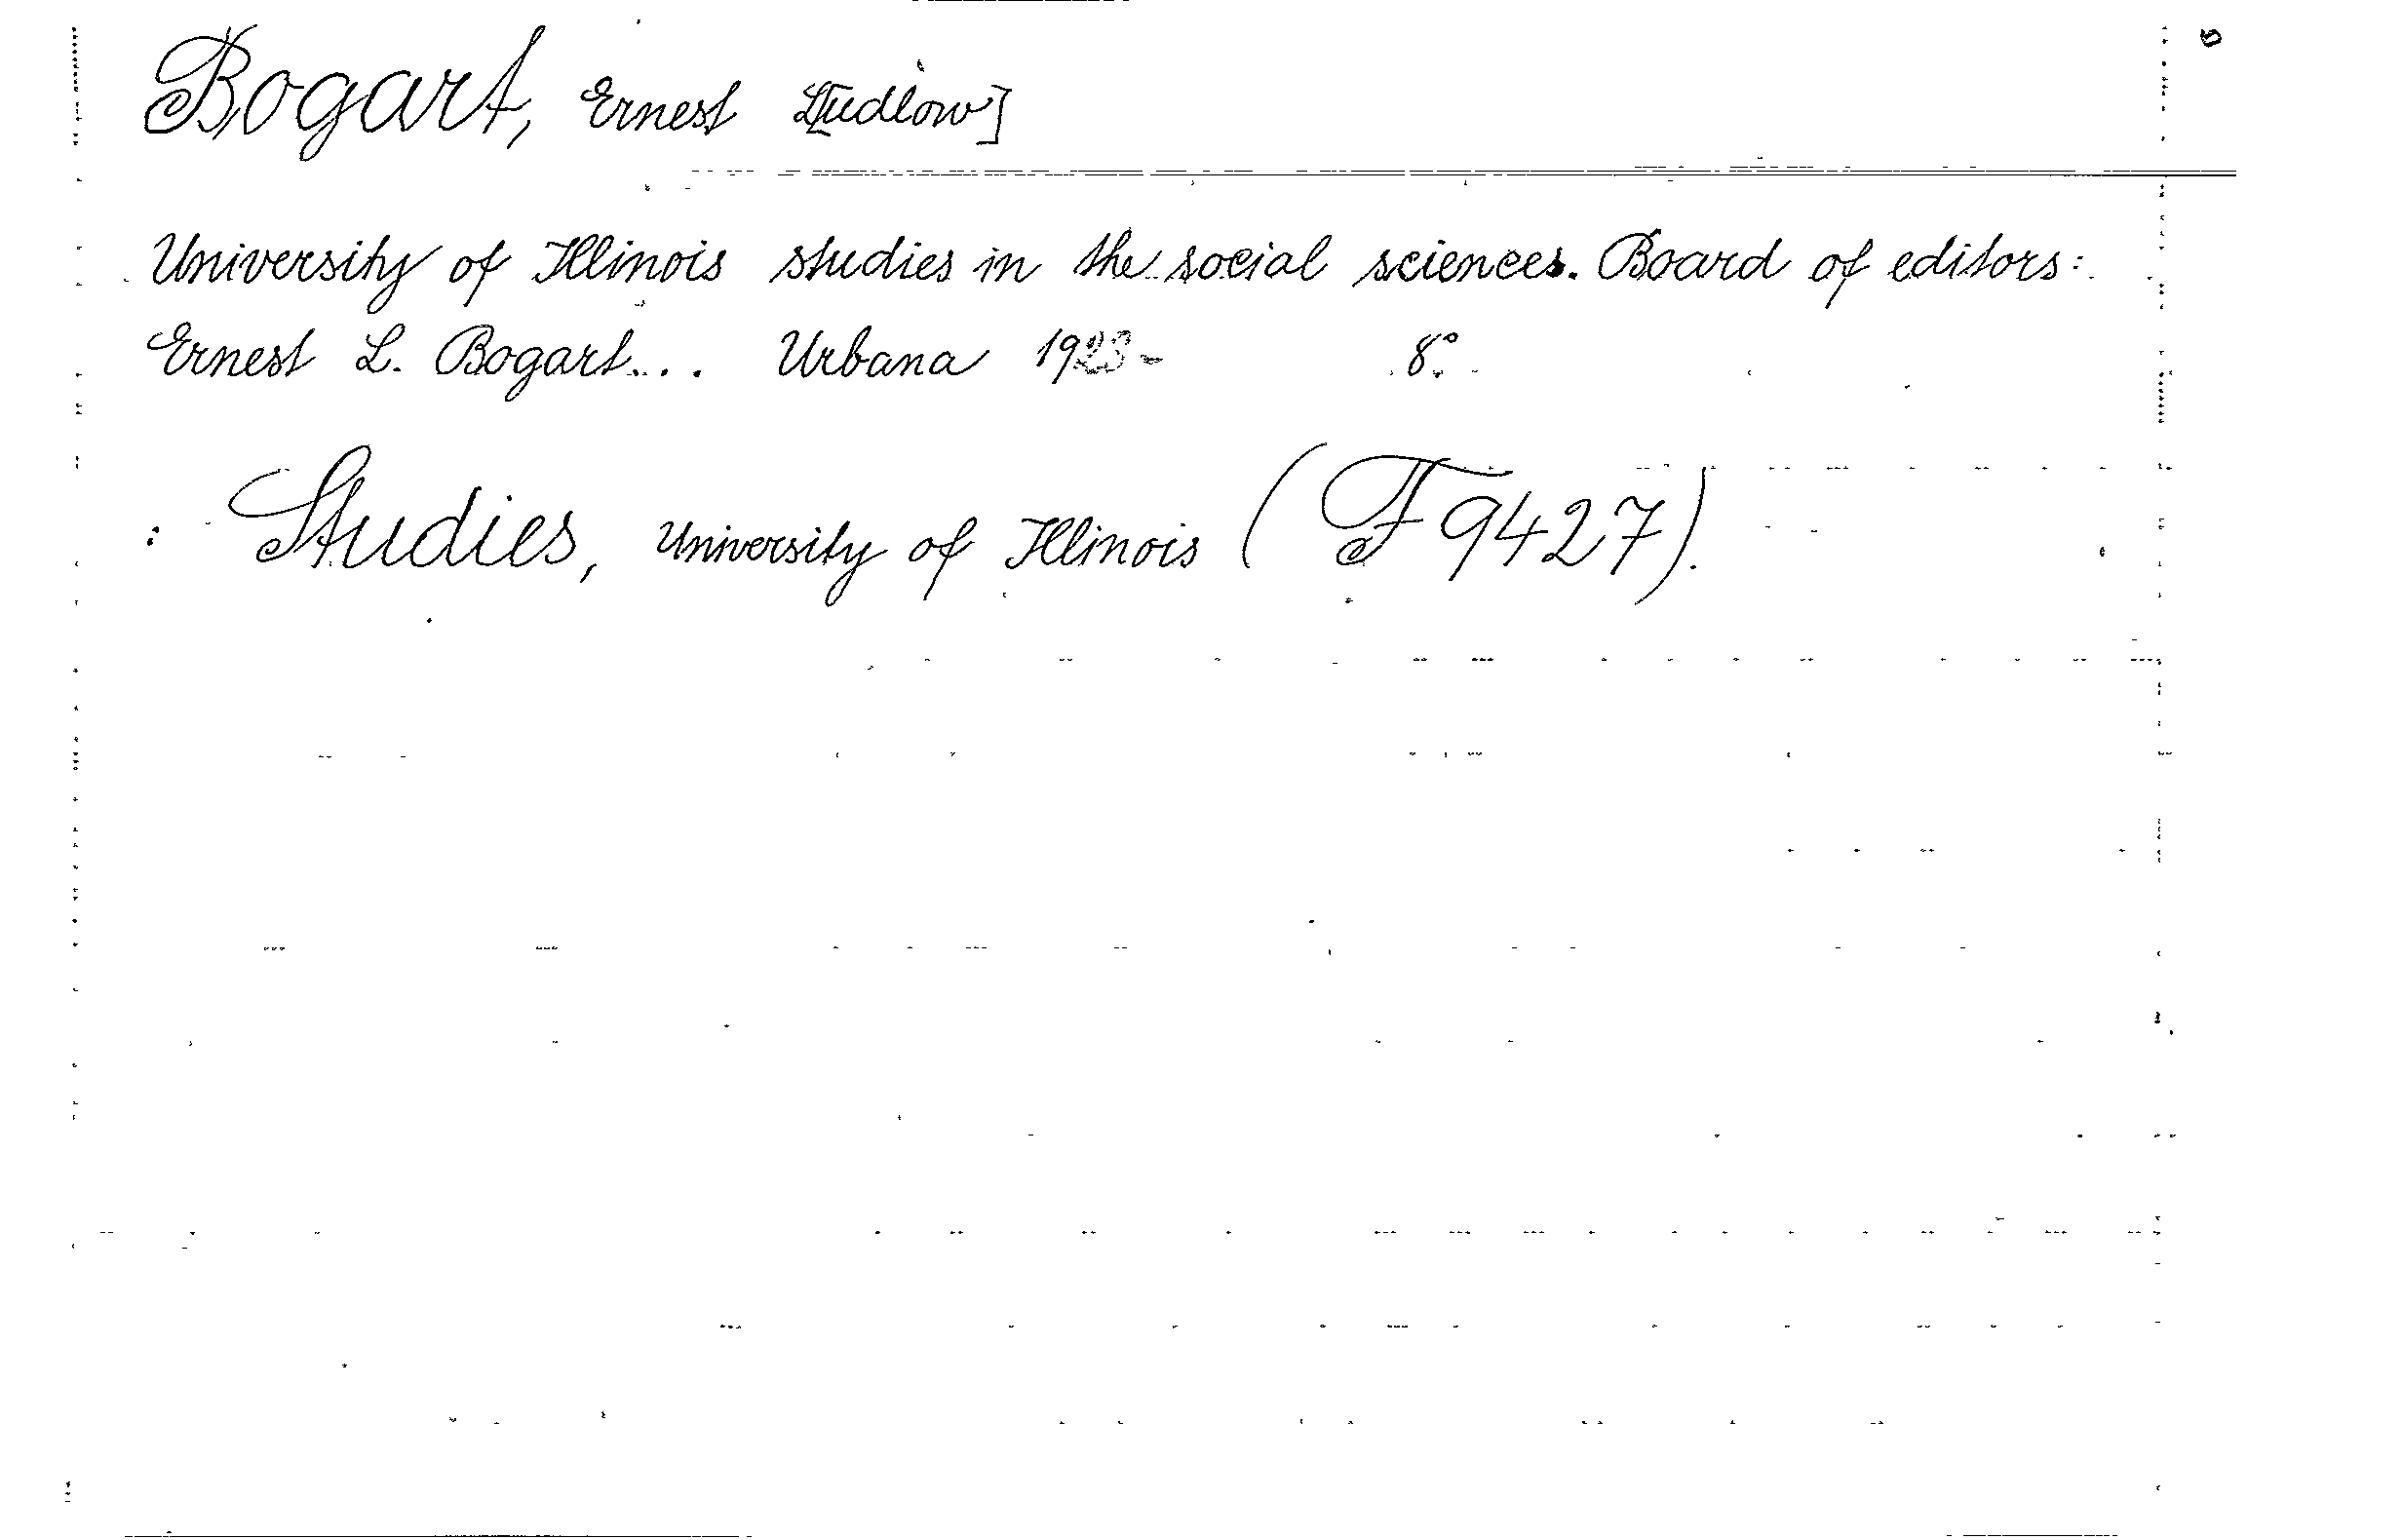 Bogart, Ernest L[udlow]
University of Illinois studies in the social sciences. Board of editors:
Ernest L. Bogart... Urbana 1923- 8°.
: Studies, University of Illinois (F 9427).